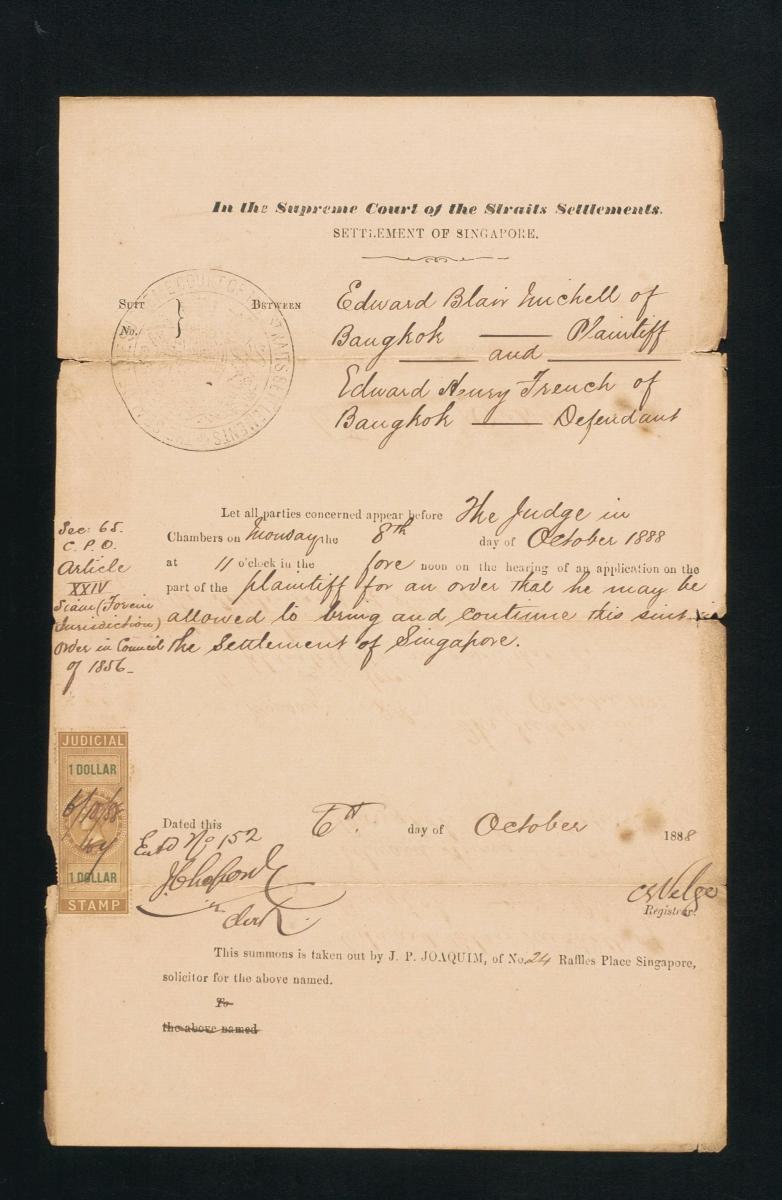 In the Supreme Court of the Straits Settlements.
SETTLEMENT OF SINGAPORE.
SUIT
No.
BETWEEN
Edward Blair Michell of
Bangkok — Plaintiff
and
Edward Henry French of
Bangkok — Defendant
Sec: 65.
C. P. O.
Article
XXIV
Siam (Forein
Jurisdiction)
Order in Council
of 1856
Let all parties concerned appear before The Judge in
Chambers on Monday the 8th day of October 1888
at 11 o'clock in the fore noon on the hearing of an application on the
part of the plaintiff for an order that he may be
allowed to bring and continue this suit in
the Settlement of Singapore.
JUDICIAL
1 DOLLAR
6/10/88
1 DOLLAR
STAMP
Dated this 6th. day of October 1888
Entd No 152
Clerk
Registrar.
This summons is taken out by J. P. JOAQUIM, of No. 24 Raffles Place Singapore,
solicitor for the above named.
To
the above named